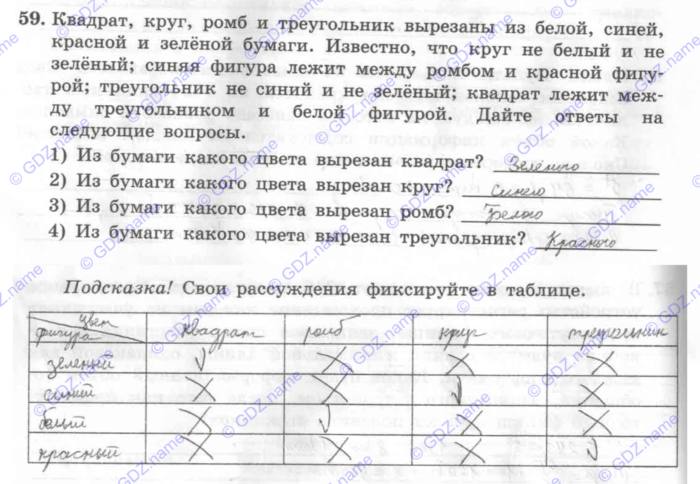 59. Квадрат, круг, ромб и треугольник вырезаны из белой, синей,
красной и зелёной бумаги. Известно, что круг не белый и не
зелёный; синяя фигура лежит между ромбом и красной фигу-
рой; треугольник не синий и не зелёный; квадрат лежит меж-
ду треугольником и белой фигурой. Дайте ответы на
следующие вопросы.
1) Из бумаги какого цвета вырезан квадрат? Зелёного
2) Из бумаги какого цвета вырезан круг? Синего
3) Из бумаги какого цвета вырезан ромб? Белого
4) Из бумаги какого цвета вырезан треугольник? Красного
Подсказка! Свои рассуждения фиксируйте в таблице.
цвет
фигура квадрат ромб круг треугольник
зеленый V X X X
синий X X V X
белый X V X X
красный X X X V
© GDZ.name